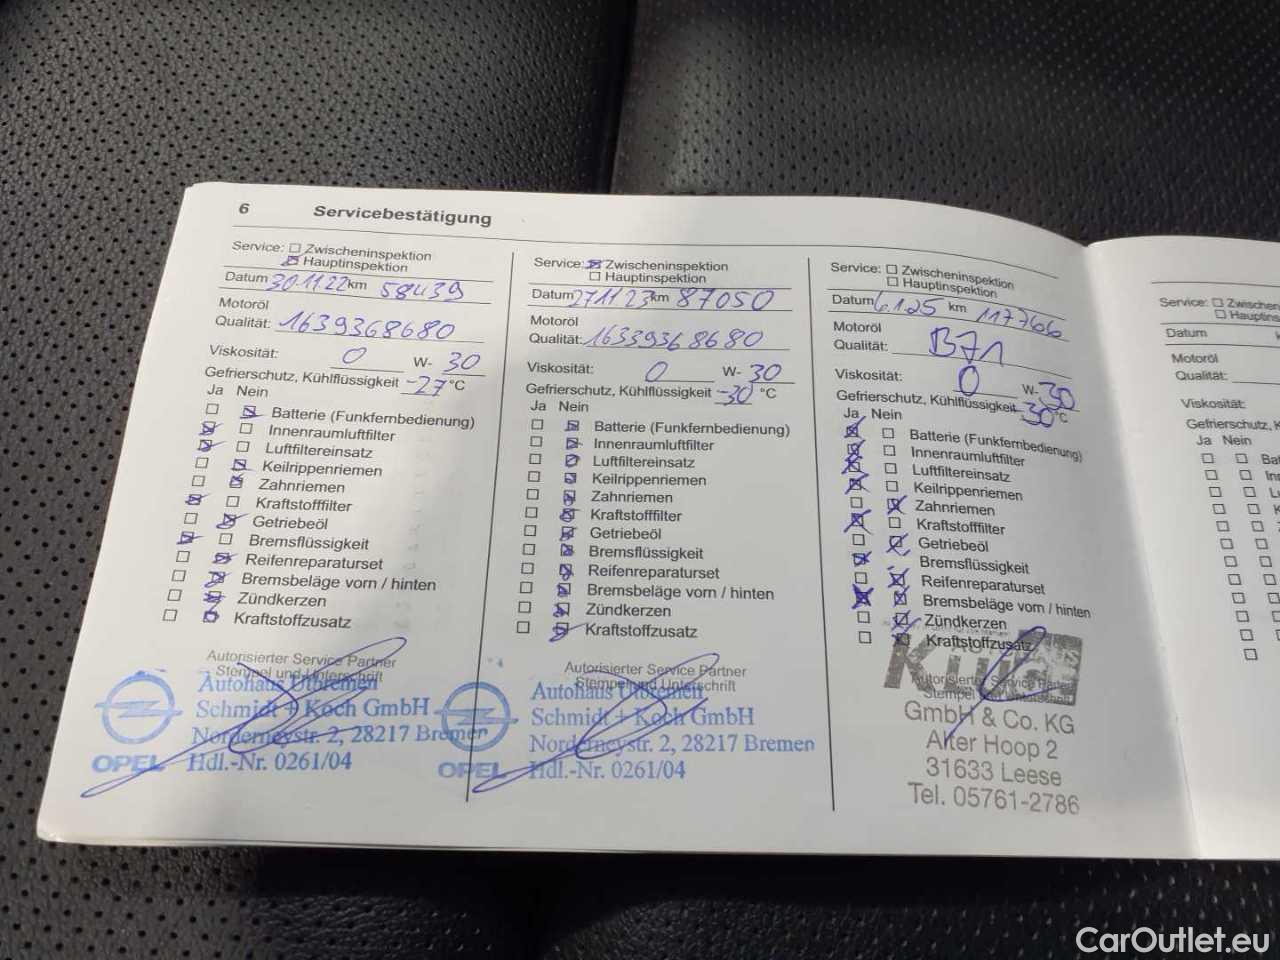 6 Servicebestätigung
Service: Zwischeninspektion
Hauptinspektion
Datum 30.11.22 km 58439
Motoröl
Qualität: 1639368680
Viskosität: 0 W- 30
Gefrierschutz, Kühlflüssigkeit -27 °C
Ja Nein
Batterie (Funkfernbedienung)
Innenraumluftfilter
Luftfiltereinsatz
Keilrippenriemen
Zahnriemen
Kraftstofffilter
Getriebeöl
Bremsflüssigkeit
Reifenreparaturset
Bremsbeläge vorn / hinten
Zündkerzen
Kraftstoffzusatz
Autorisierter Service Partner
Stempel und Unterschrift
Autohaus Utbremen
Schmidt + Koch GmbH
Norderneystr. 2, 28217 Bremen
OPEL Hdl.-Nr. 0261/04
Service: Zwischeninspektion
Hauptinspektion
Datum 27.11.23 km 87050
Motoröl
Qualität: 16339368680
Viskosität: 0 W- 30
Gefrierschutz, Kühlflüssigkeit -30 °C
Ja Nein
Batterie (Funkfernbedienung)
Innenraumluftfilter
Luftfiltereinsatz
Keilrippenriemen
Zahnriemen
Kraftstofffilter
Getriebeöl
Bremsflüssigkeit
Reifenreparaturset
Bremsbeläge vorn / hinten
Zündkerzen
Kraftstoffzusatz
Autorisierter Service Partner
Stempel und Unterschrift
Autohaus Utbremen
Schmidt + Koch GmbH
Norderneystr. 2, 28217 Bremen
OPEL Hdl.-Nr. 0261/04
Service: Zwischeninspektion
Hauptinspektion
Datum 6.1.25 km 117766
Motoröl
Qualität: B71
Viskosität: 0 W- 30
Gefrierschutz, Kühlflüssigkeit 30 °C
Ja Nein
Batterie (Funkfernbedienung)
Innenraumluftfilter
Luftfiltereinsatz
Keilrippenriemen
Zahnriemen
Kraftstofffilter
Getriebeöl
Bremsflüssigkeit
Reifenreparaturset
Bremsbeläge vorn / hinten
Zündkerzen
Kraftstoffzusatz
Autorisierter Service Partner
Stempel und Unterschrift
GmbH & Co. KG
Alter Hoop 2
31633 Leese
Tel. 05761-2786
Service: Zwischen
Hauptins
Datum
Motoröl
Qualität:
Viskosität:
Gefrierschutz, K
Ja Nein
CarOutlet.eu